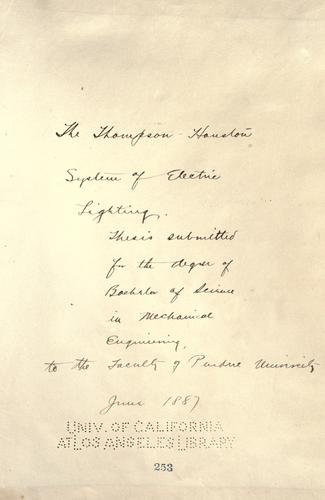 The Thompson-Houston
System of Electric
Lighting.
Thesis submitted
for the degree of
Bachelor of Science
in Mechanical
Engineering,
to the Faculty of Purdue University
June 1887
UNIV. OF CALIFORNIA
AT LOS ANGELES LIBRARY
253